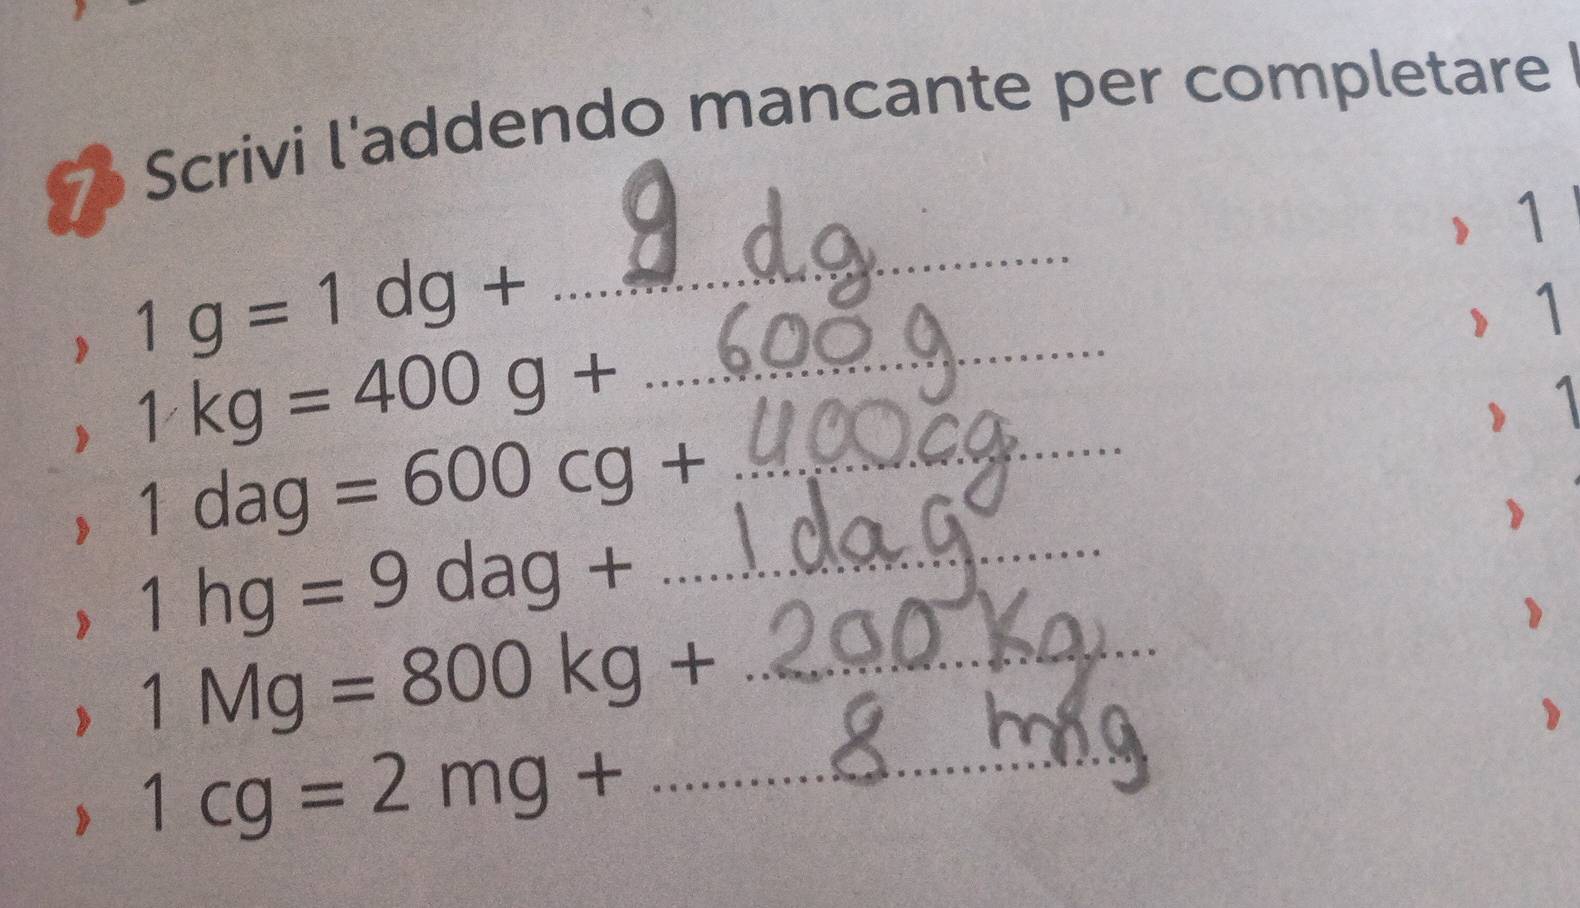 7 Scrivi l'addendo mancante per completare
1 g = 1 dg + 9 dg
1 kg = 400 g + 600 g
1 dag = 600 cg + 400 cg
1 hg = 9 dag + 1 dag
1 Mg = 800 kg + 200 Kg
1 cg = 2 mg + 8 mg
1
1
1